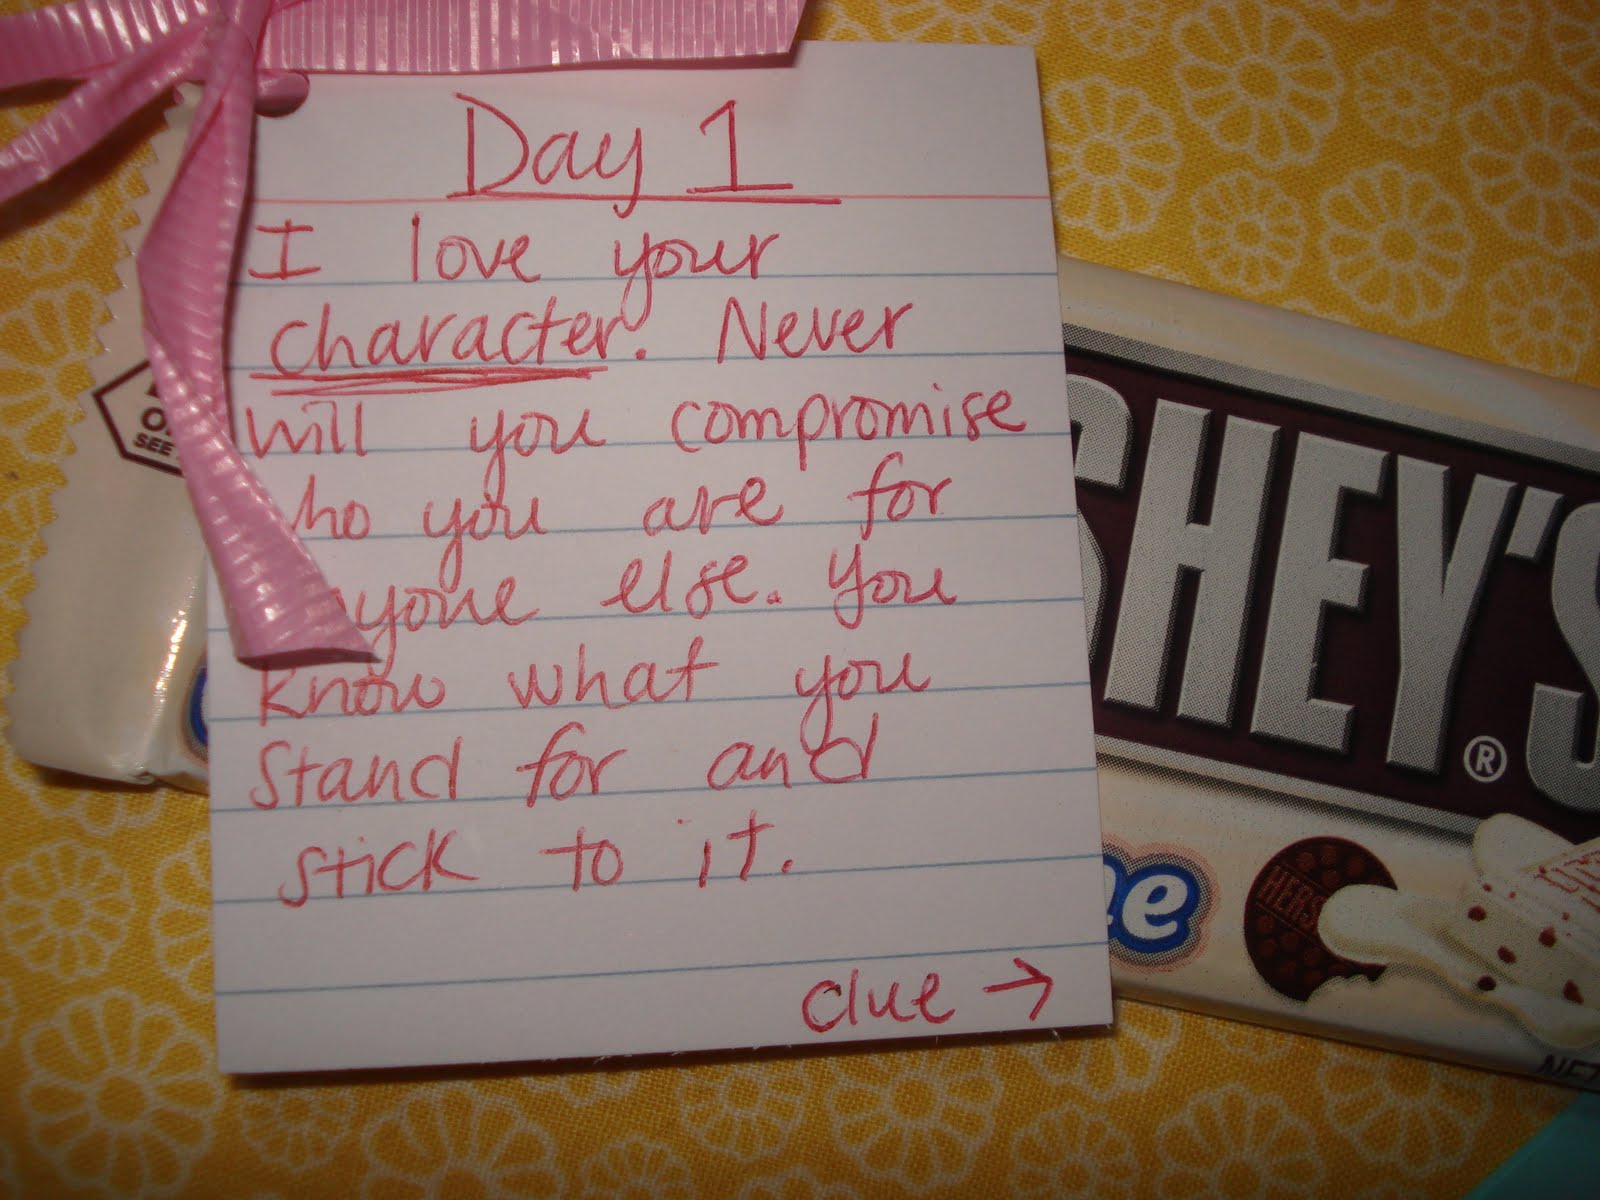 Day 1
I love your
character. Never
will you compromise
who you are for
anyone else. You
know what you
stand for and
stick to it.
clue →
SEE
HEY'S
®
HERS